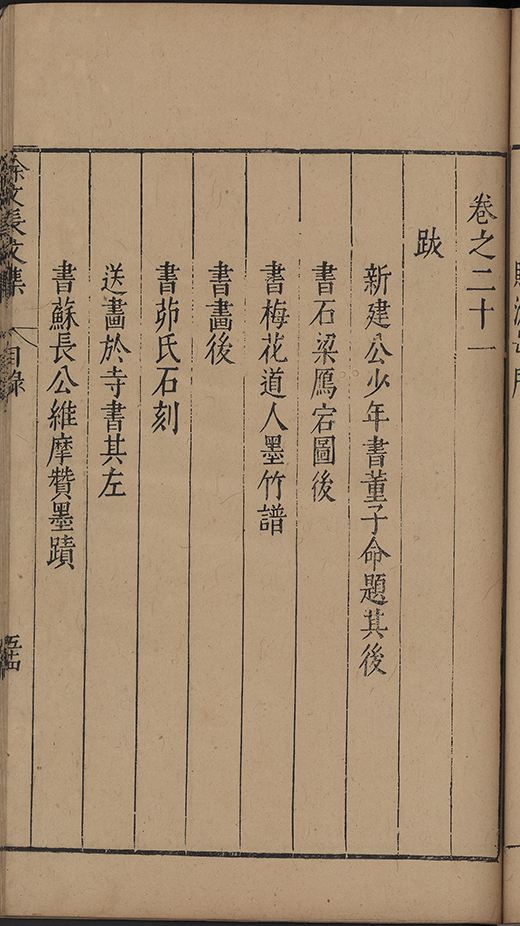 卷之二十一
跋
新建公少年書董子命題其後
書石梁鴈宕圖後
書梅花道人墨竹譜
書畫後
書茆氏石刻
送畫於寺書其左
書蘇長公維摩贊墨蹟
徐文長文集
目錄